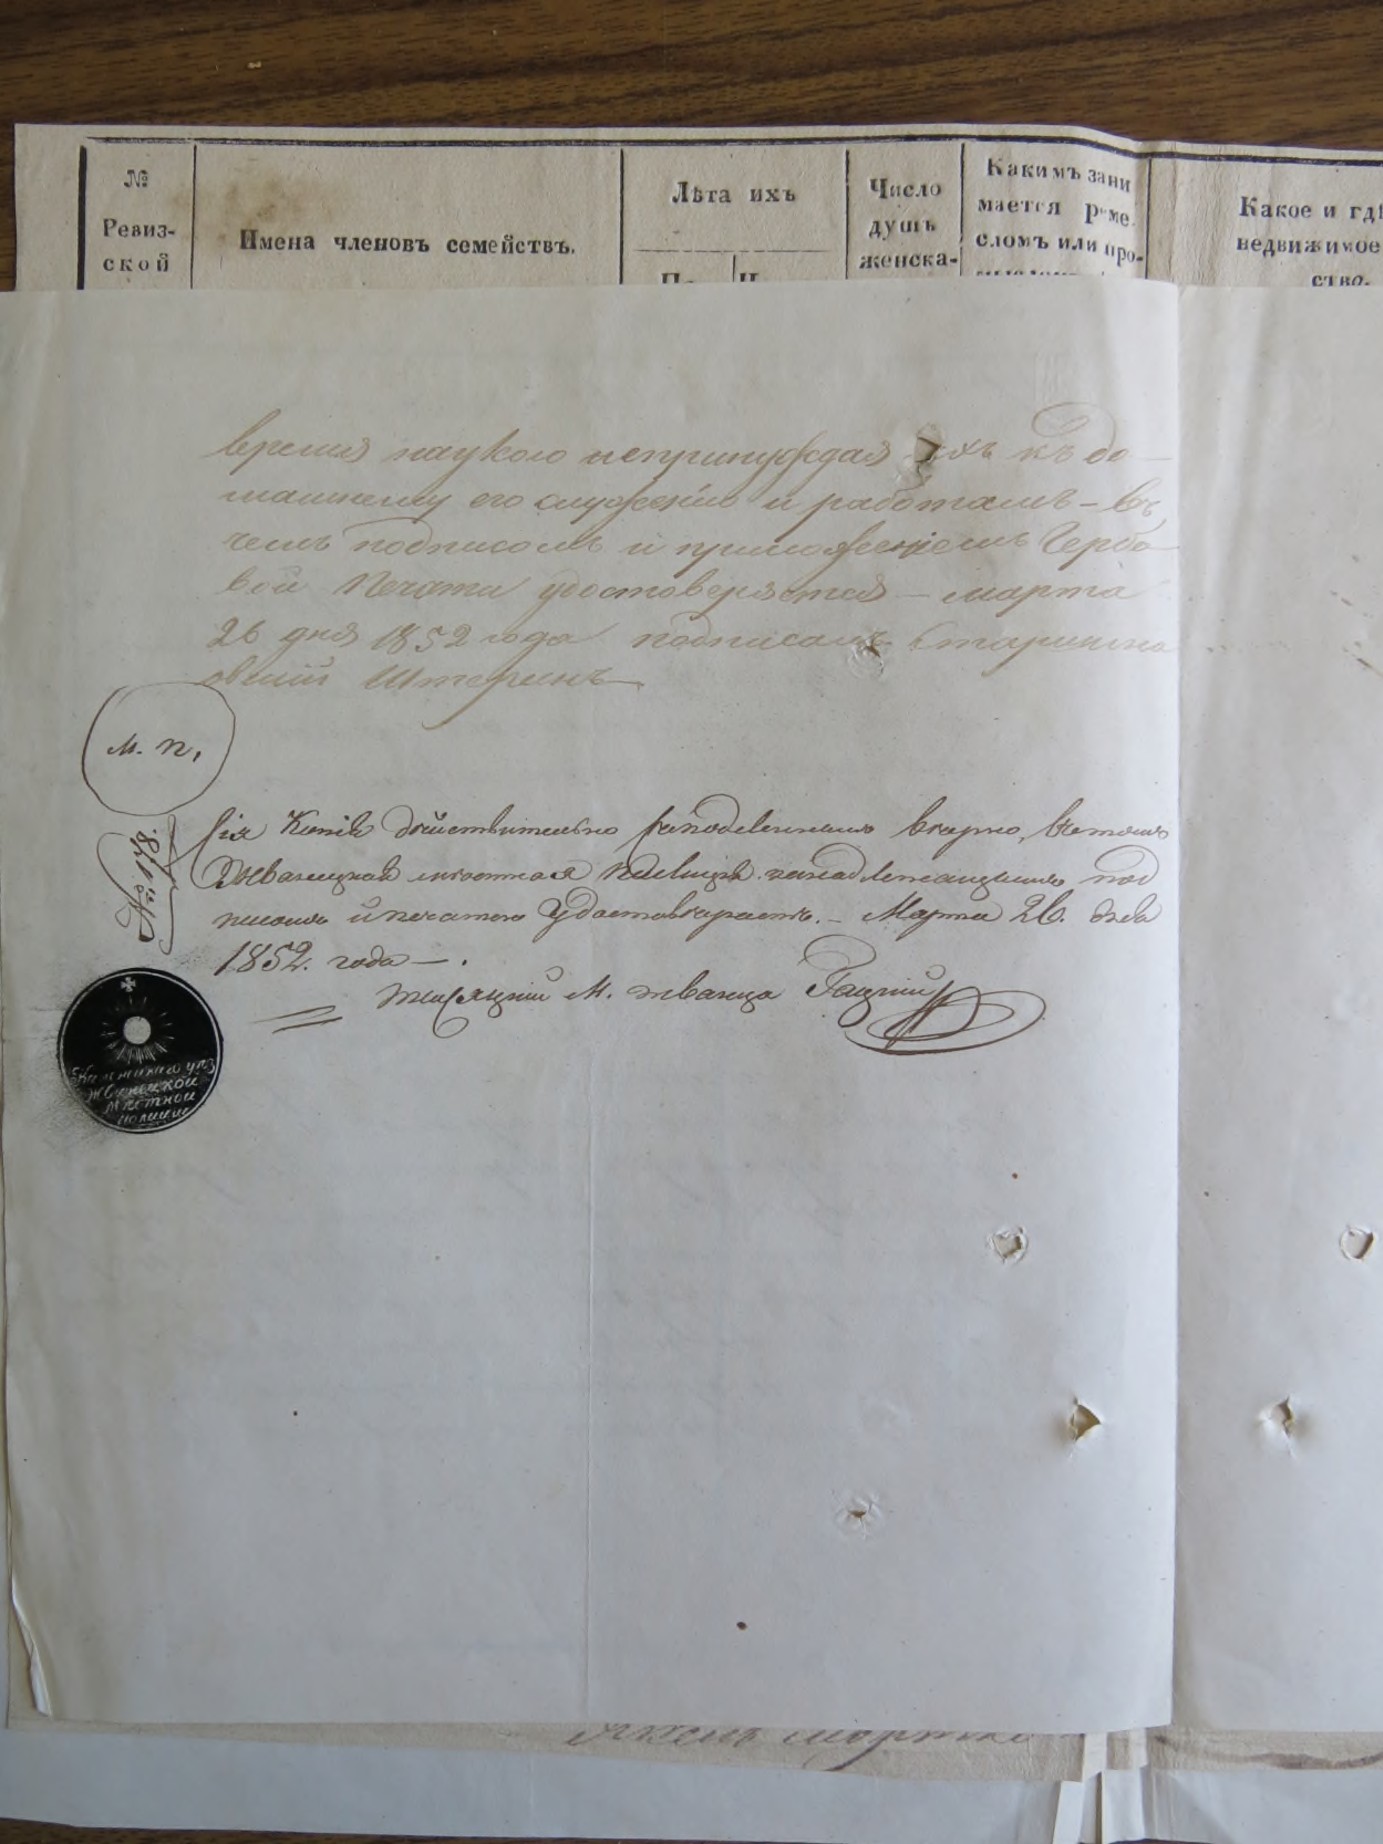 №
Ревиз-
ской
Имена членовъ семействъ.
Лѣта ихъ
Число
душъ
женска-
Какимъ зани
мается реме.
сломъ или про-
Какое и гдѣ
недвижимое
ство.
время наукою непринуждая ихъ къ до
машнему его служенію и работамъ – въ
чемъ подписомъ и приложеніемъ Гербо
вой Печати удостоверяется – марта
26 дня 1852 года подписалъ Старшина
Штернъ
М. П.
Сія Копія действительно верно, въ томъ
Жванецкая местная Полиція надлежащимъ под
писомъ и печатью Удостоверяетъ. – Марта 26. дня
1852. года – .
М. Жванца
№ 178.
Каменецкого уез
Жванецкой
Местной
полиции